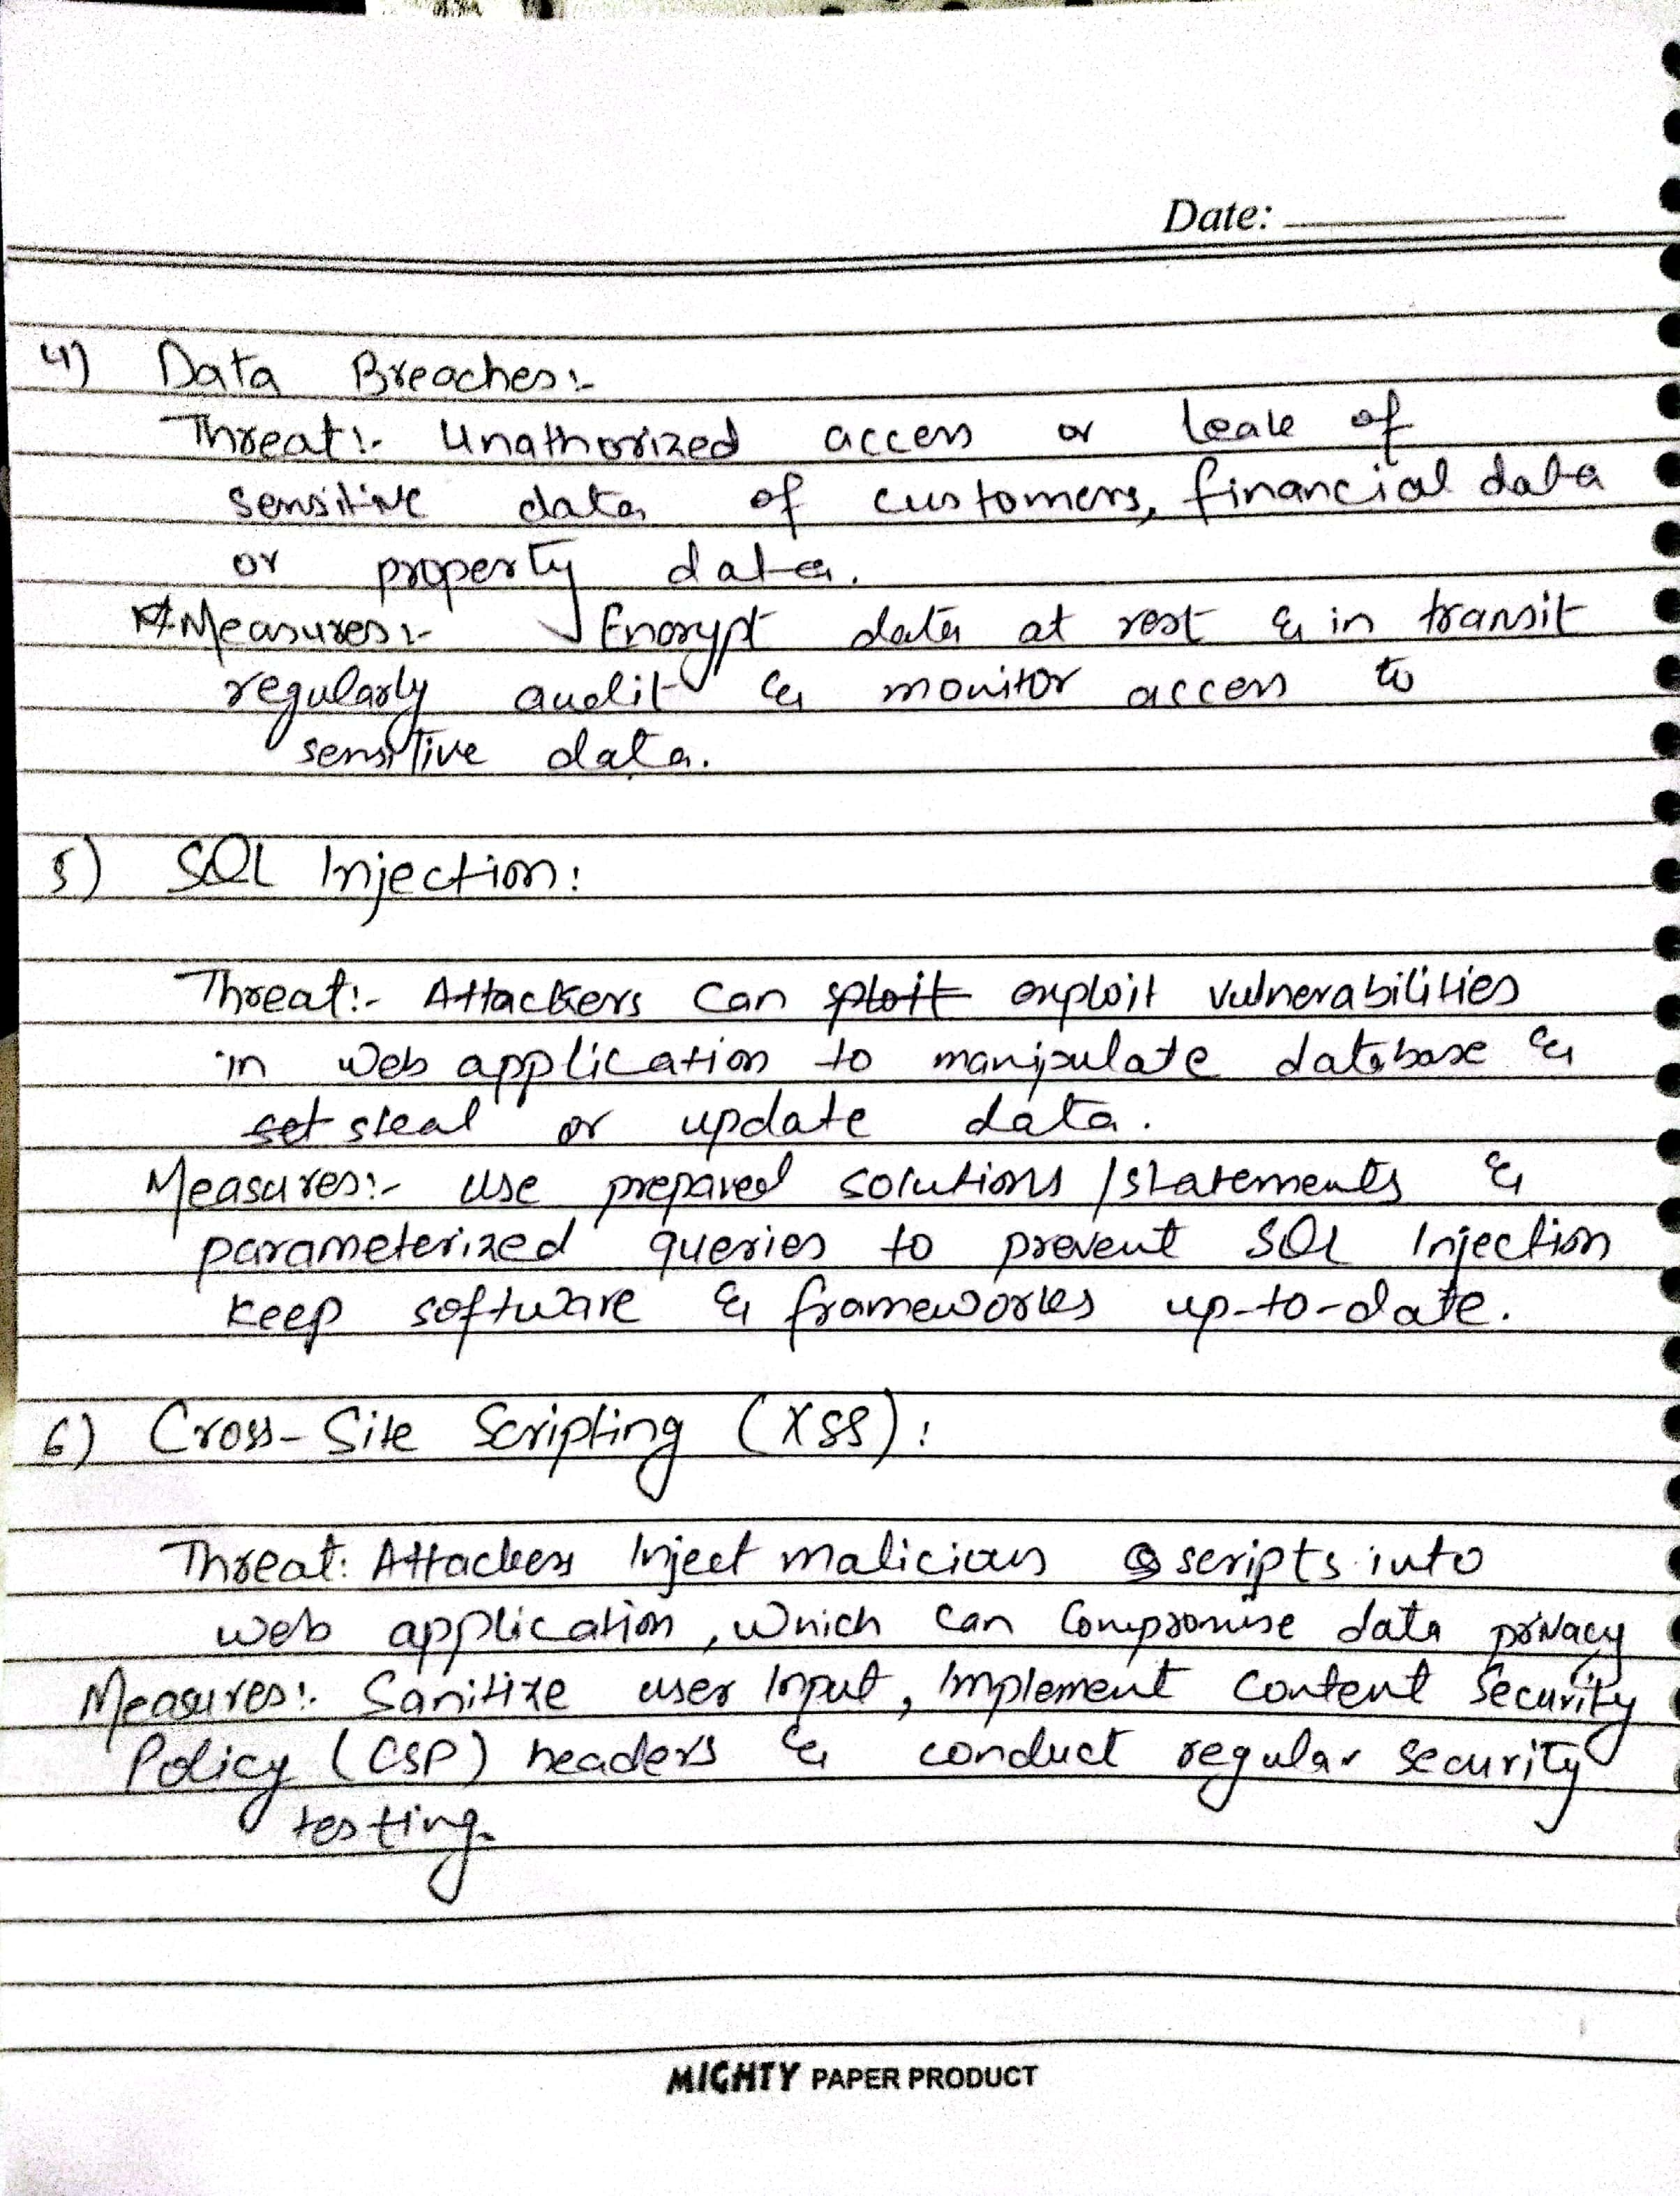 Date:
4) Data Breaches:-
Threat:- Unathorized access or leak of
sensitive data of customers, financial data
or property data.
Measures:- Encrypt data at rest & in transit
regularly audit & monitor access to
sensitive data.
5) SQL Injection:
Threat:- Attackers can sploit exploit vulnerabilities
in web application to manipulate database &
set steal or update data.
Measures:- Use prepared solutions / statements &
parameterized queries to prevent SQL Injection
keep software & frameworks up-to-date.
6) Cross-Site Scripting (XSS):
Threat: Attackers Inject malicious scripts into
web application, which can compromise data privacy
Measures:- Sanitize user Input, Implement Content Security
Policy (CSP) headers & conduct regular security
testing.
MIGHTY PAPER PRODUCT